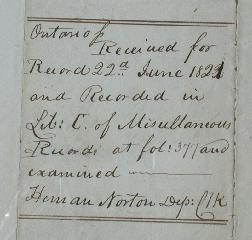 Ontario ss
Received for
Record 22d. June 1821
and Recorded in
Lib: C. of Miscellaneous
Records at fol: 377 and
examined
Heman Norton Dep: Clk